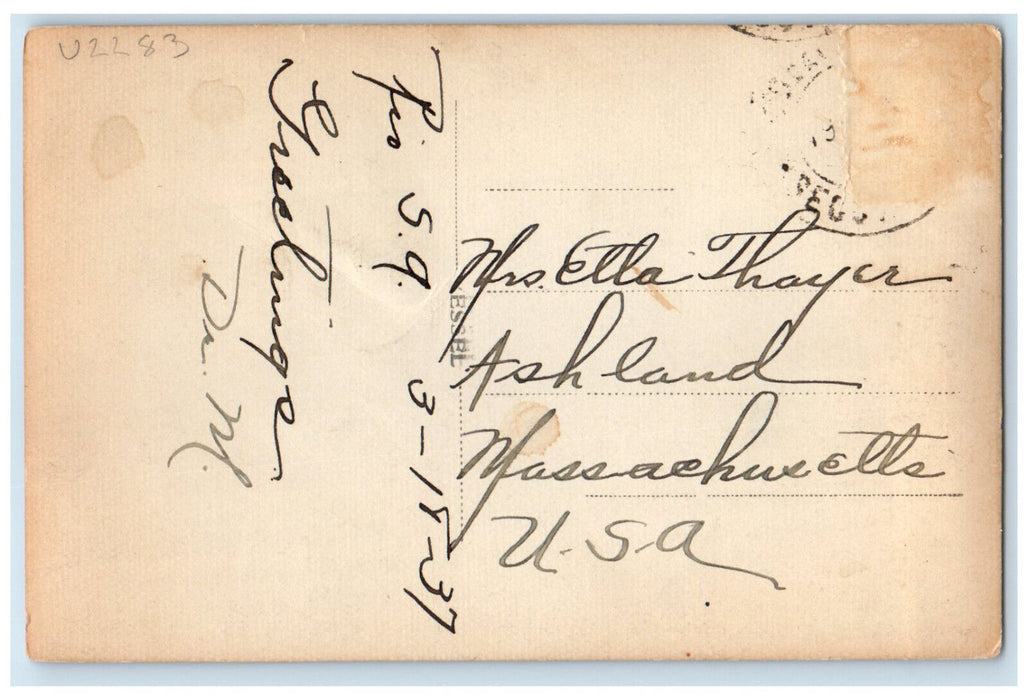 U2283
S.A. 3-18-37
Greetings
Dr. M.
Mrs. Etta Thayer
Ashland
Massachusetts
U.S.A